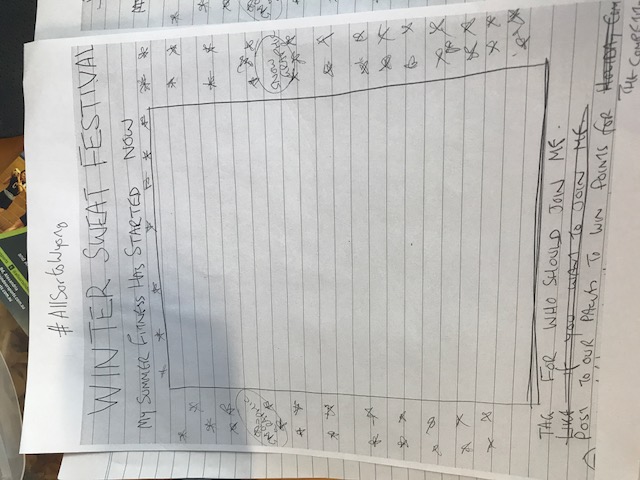 #AllSortsWyong
WINTER SWEAT FESTIVAL
MY SUMMER FITNESS HAS STARTED NOW
SNOW
TAG FOR WHO SHOULD JOIN ME.
LIKE IF YOU WANT TO JOIN ME
POST TO OUR PAGES TO WIN POINTS FOR
THE